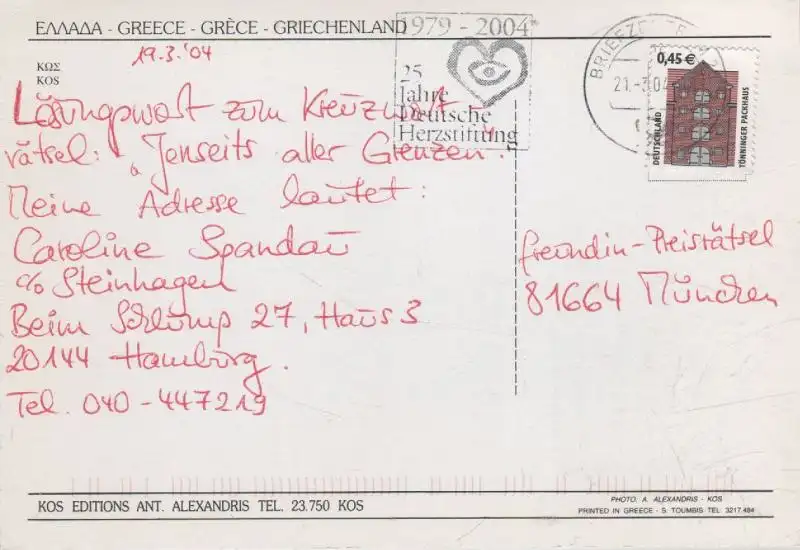 ΕΛΛΑΔΑ - GREECE - GRÈCE - GRIECHENLAND
19.3.'04
ΚΩΣ
KOS
1979 - 2004
25
Jahre
Deutsche
Herzstiftung
21.-3.04
0,45 €
DEUTSCHLAND
TÖNNINGER PACKHAUS
Lösungswort zum Kreuzwort-
rätsel: „Jenseits aller Grenzen".
Meine Adresse lautet:
Caroline Spandau
c/o Steinhagen
Beim Schlump 27, Haus 3
20144 Hamburg.
Tel. 040-447219
freundin-Preisrätsel
81664 München
KOS EDITIONS ANT. ALEXANDRIS TEL. 23.750 KOS
PHOTO: A. ALEXANDRIS - KOS
PRINTED IN GREECE - S. TOUMBIS TEL. 3217.484